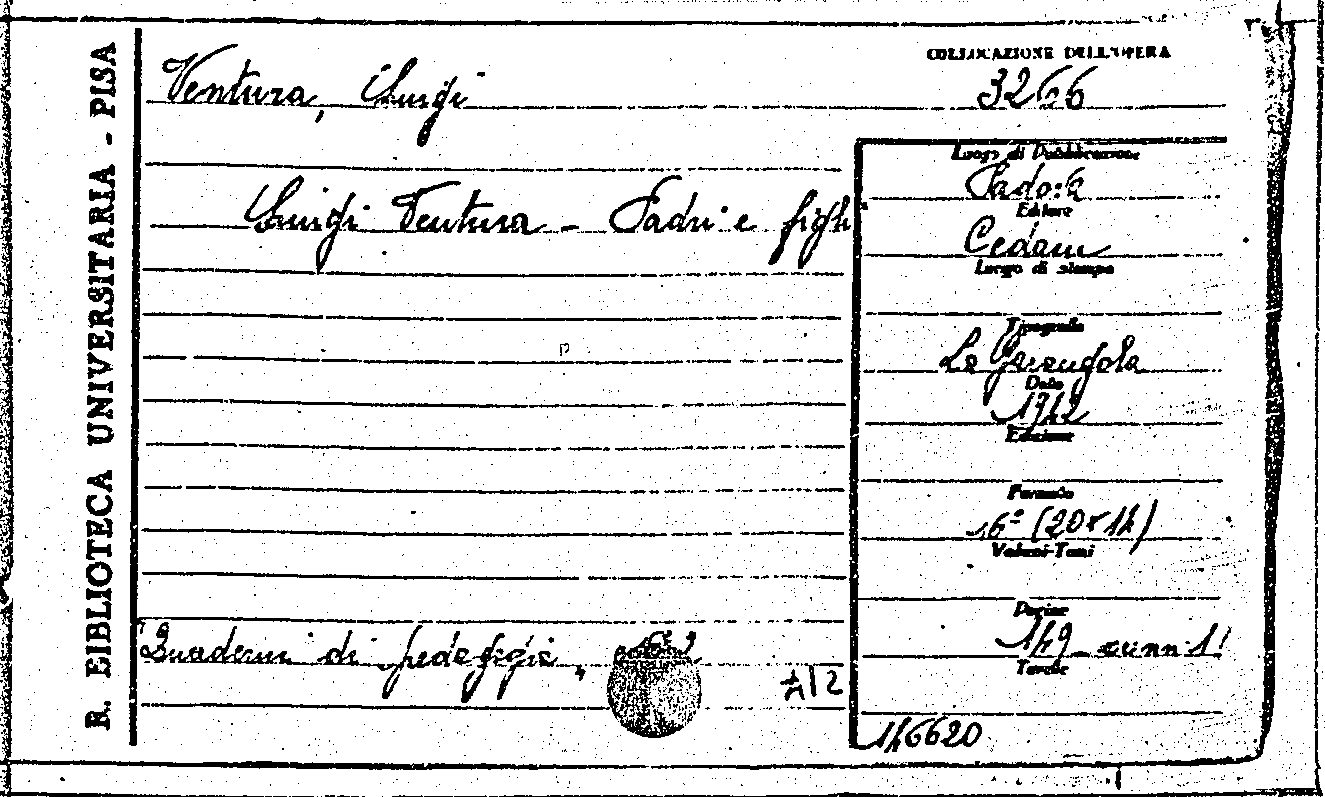 R. BIBLIOTECA UNIVERSITARIA - PISA
COLLOCAZIONE DELL'OPERA
Ventura, Luigi
3266
Luigi Ventura - Padri e figli
Luogo di Pubblicazione
Padova
Editore
Cedam
Luogo di stampa
Tipografia
La Garangola
Data
1942
Edizione
Formato
16º (20x14)
Volumi-Tomi
Pagine
149
Tavole
"Quaderni di pedagogia"
146620